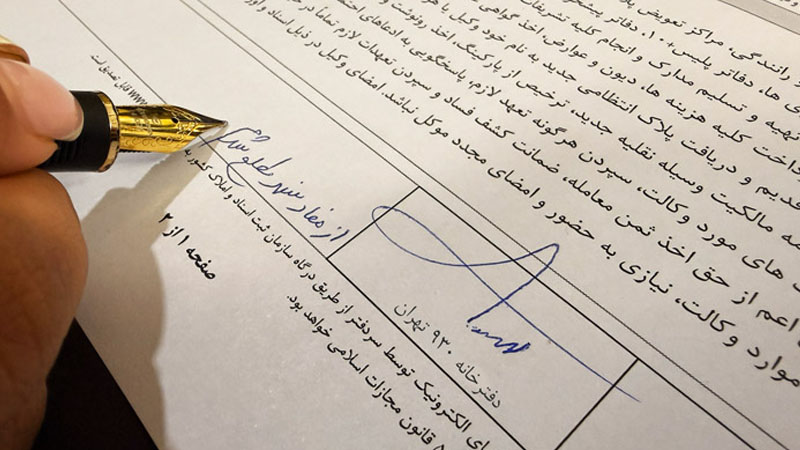 و رانندگی، مراکز تعویض پلا
ی ها، دفاتر پلیس+۱۰، دفاتر پیشخو
تهیه و تسلیم مدارک و انجام کلیه تشریفات
داخت کلیه هزینه ها، دیون و عوارض، اخذ گواهی
قدیم و دریافت پلاک انتظامی جدید به نام خود وکیل یا هر
مه مالکیت وسیله نقلیه جدید، ترخیص از پارکینگ، اخذ رونوشت و
ت های مورد وکالت، سپردن هرگونه تعهد لازم، پاسخگویی به ادعاهای احتم
اعم از حق اخذ ثمن معامله، ضمانت کشف فساد و سپردن تعهدات لازم تماماً در حد
موارد وکالت، نیازی به حضور و امضای مجدد موکل نباشد. امضای وکیل در ذیل اسناد و اور
از مفاد سند مطلع شد
دفترخانه ۹۳۰ تهران
قابل تصدیق است.
ای الکترونیک توسط سردفتر از طریق درگاه سازمان ثبت اسناد و املاک کشور به
۵ قانون مجازات اسلامی خواهد بود.
صفحه ۱ از ۲